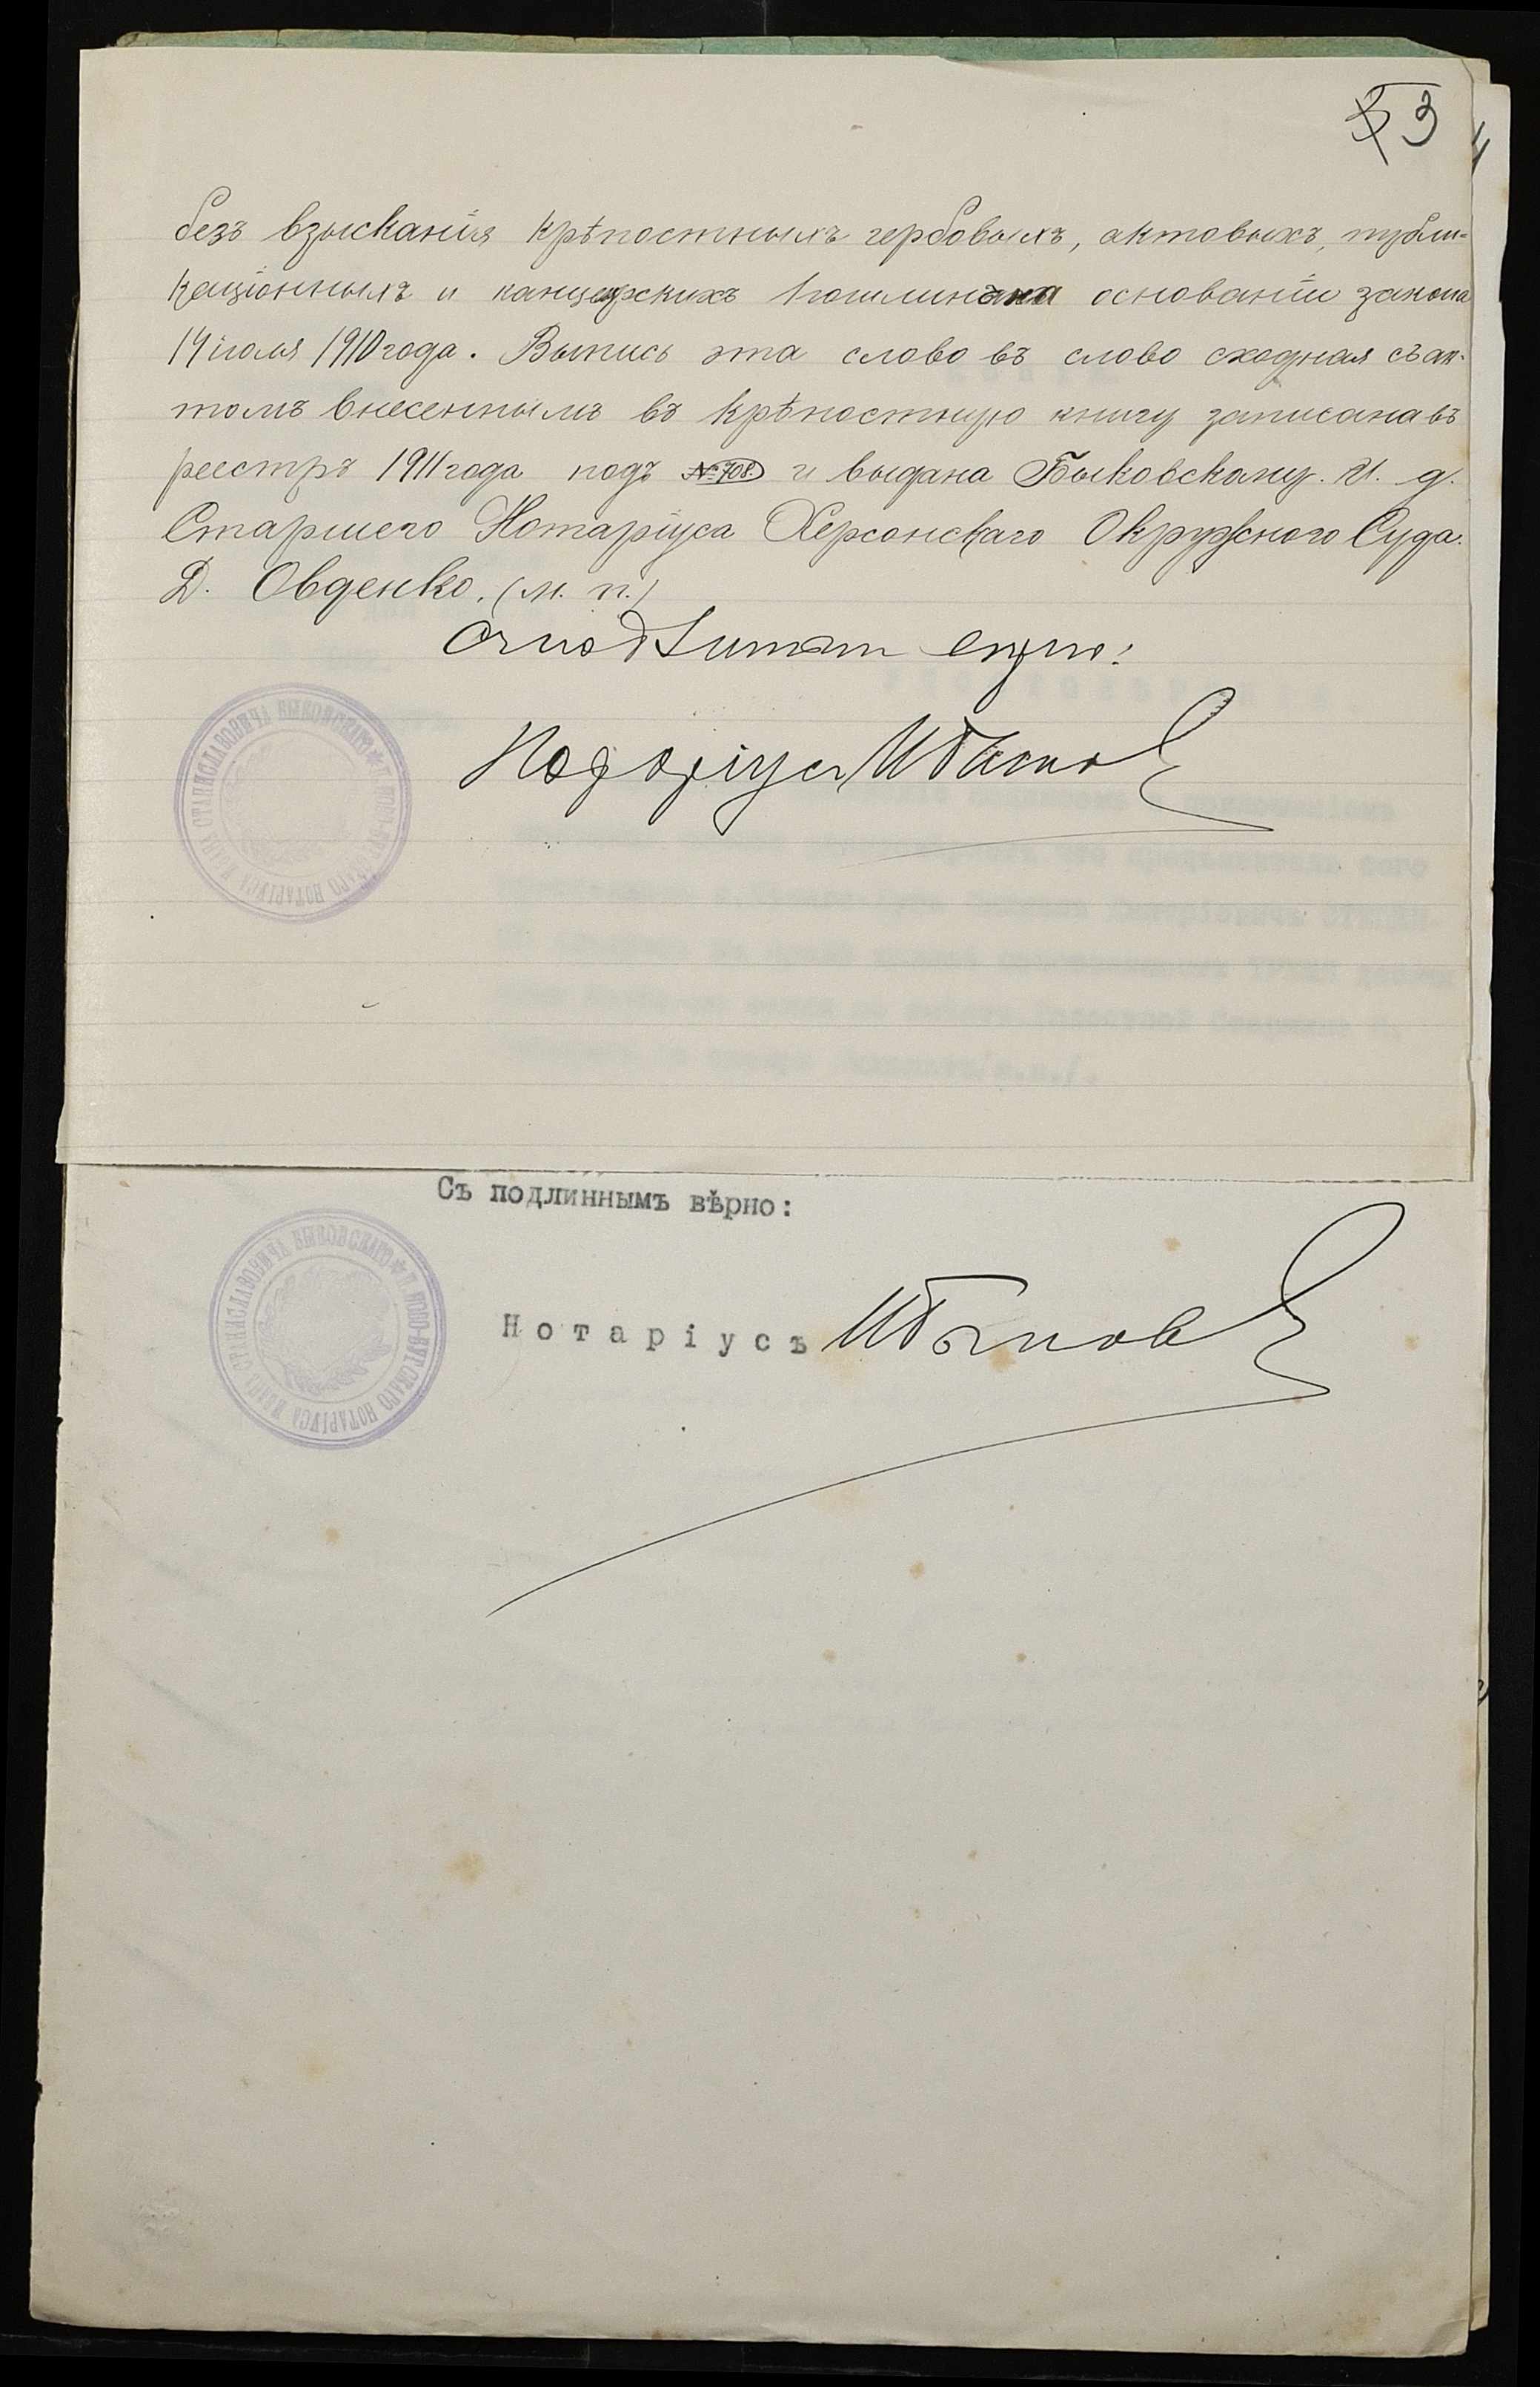 3 3
безъ взысканія крѣпостныхъ гербовыхъ, актовыхъ, публи-
каціонныхъ и канцерскихъ пошлинъ на основаніи закона
14 іюля 1910 года. Выпись эта слово въ слово сходная съ ак-
томъ внесеннымъ въ крѣпостную книгу записана въ
реестръ 1911 года подъ № 708. и выдана Быковскому. И. д.
Старшего Нотаріуса Херсонскаго Окружного Суда.
Д. Овденко. (м. п.)
Съ подлиннымъ вѣрно:
Нотаріусъ
СТАНИСЛАВОВИЧА БЫКОВСКАГО НОТАРІУСА
Съ подлиннымъ вѣрно:
Нотаріусъ
СТАНИСЛАВОВИЧА БЫКОВСКАГО НОВО-БУГСКАГО НОТАРІУСА